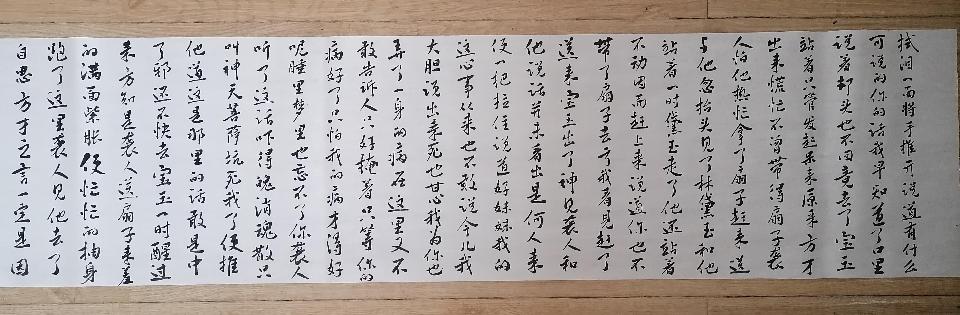 拭泪一面将手推开说道有什么
可说的你的话我早知道了口里
说着却头也不回竟去了宝玉
站着只管发起呆来原来方才
出来慌忙不曾带得扇子袭
人怕他热忙拿了扇子赶来送
与他忽抬头见了林黛玉和他
站着一时黛玉走了他还站着
不动因而赶上来说道你也不
带了扇子去亏我看见赶了
送来宝玉出了神见袭人和
他说话并未看出是何人来
便一把拉住说道好妹妹我的
这心事从来也不敢说今儿我
大胆说出来死也甘心我为你也
弄了一身的病在这里又不
敢告诉人只好掩着只等你的
病好了只怕我的病才得好
呢睡里梦里也忘不了你袭人
听了这话吓得魄消魂散只
叫神天菩萨坑死我了便推
他道这是那里的话敢是中
了邪还不快去宝玉一时醒过
来方知是袭人送扇子来羞
的满面紫胀便忙忙的抽身
跑了这里袭人见他去了
自思方才之言一定是因